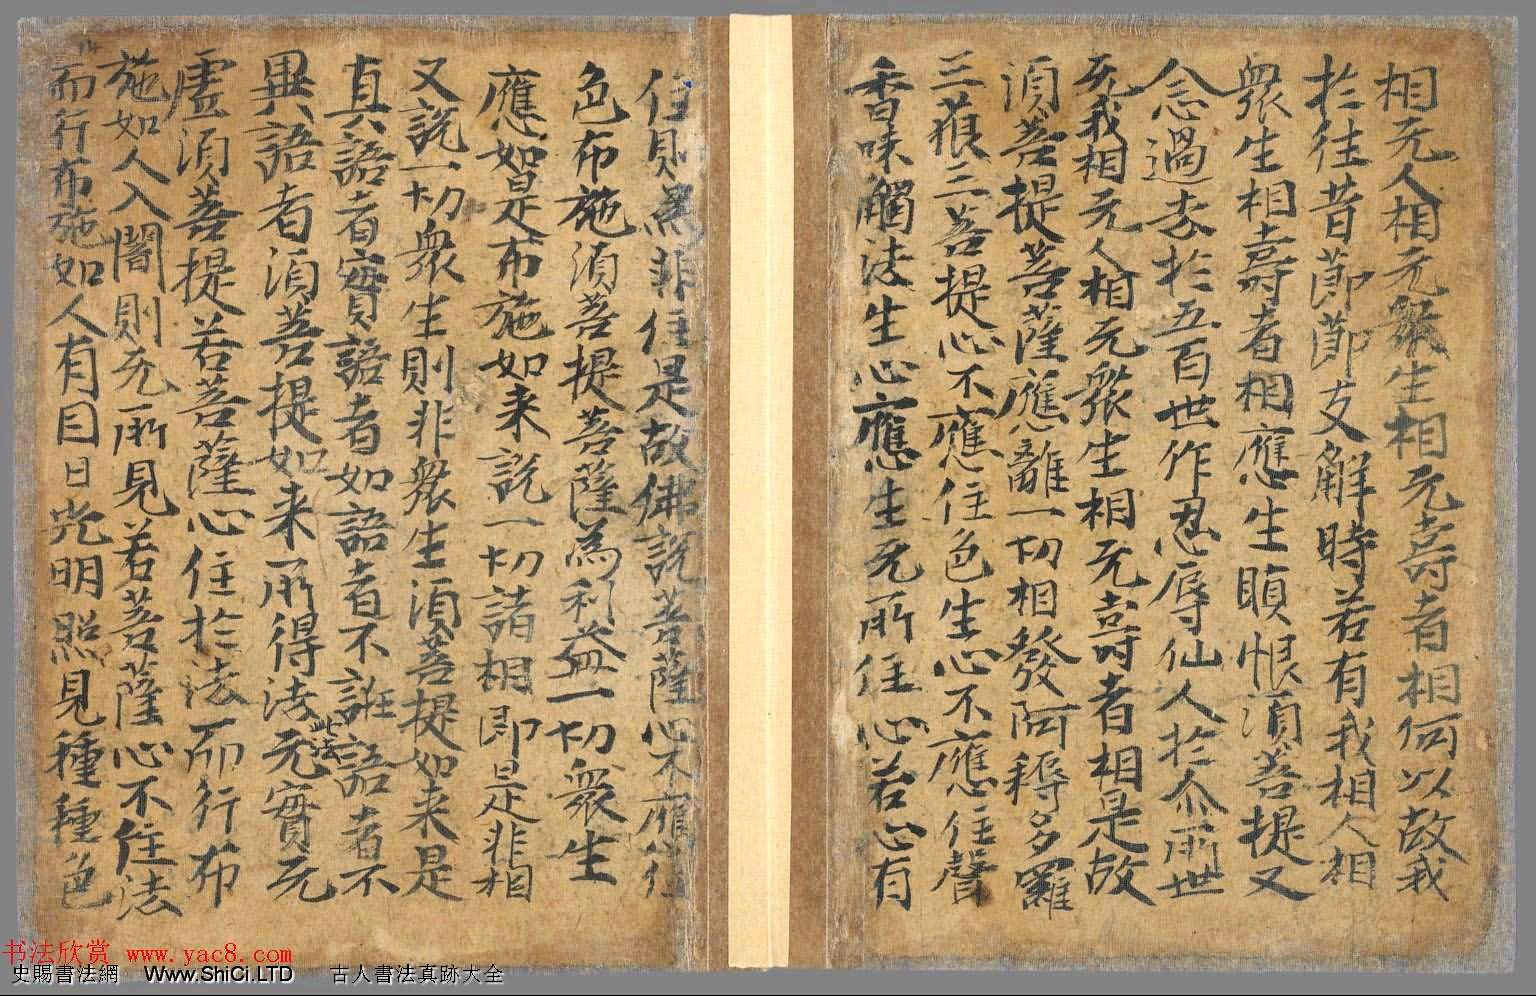 相无人相无眾生相无壽者相何以故我
扵往昔莭莭支解時若有我相人相
眾生相壽者相應生瞋恨湏菩提又
念過去扵五百世作忍辱仙人扵尒所世
无我相无人相无眾生相无壽者相是故
湏菩提菩薩應離一切相發阿耨多羅
三藐三菩提心不應住色生心不應住聲
香味觸法生心應生无所住心若心有
住則為非住是故佛說菩薩心不應住
色布施湏菩提菩薩為利益一切眾生
應如是布施如来說一切諸相即是非相
又說一切眾生則非眾生湏菩提如来是
真語者實語者如語者不誑語者不
異語者湏菩提如来所得法此法无實无
虛湏菩提若菩薩心住扵法而行布
施如人入闇則无所見若菩薩心不住法
而行布施如人有目日光明照見種種色
书法欣赏 www.yac8.com
史賜書法網 Www.ShiCi.LTD 古人書法真跡大全